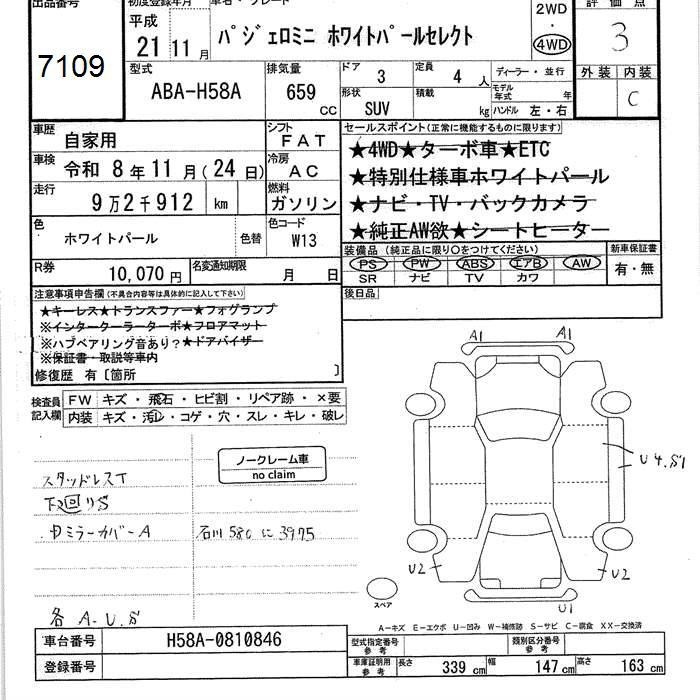 出品番号
7109
初度登録年月
平成
21年11月
車名・グレード
パジェロミニ ホワイトパールセレクト
2WD
・
4WD
評価点
3
型式
ABA-H58A
排気量
659 CC
ドア 3
定員 4人
形状 SUV
積載 kg
ディーラー・並行
モデル年式 年
ハンドル 左・右
外装 内装
C
車歴 自家用
シフト FAT
車検 令和 8年11月(24日)
冷房 AC
走行 9万2千912 km
燃料 ガソリン
色 ホワイトパール 色替
色コード W13
R券 10,070円
名変通知期限 月 日
セールスポイント(正常に機能するものに限ります)
★4WD★ターボ車★ETC
★特別仕様車ホワイトパール
★ナビ・TV・バックカメラ
★純正AW欲★シートヒーター
装備品 (純正品に限り○をつけてください)
PS PW ABS エアB AW
SR ナビ TV カワ
新車保証書
有・無
後日品
注意事項申告欄(不具合内容等は具体的に記入して下さい)
★キーレス★トランスファー★フォグランプ
※インタークーラーターボ★フロアマット
※ハブベアリング音あり?★ドアバイザー
※保証書・取説等車内
修復歴 有[箇所 ]
検査員記入欄
FW キズ・飛石・ヒビ割・リペア跡・×要
内装 キズ・汚レ・コゲ・穴・スレ・キレ・破レ
ノークレーム車
no claim
スタッドレスT
下回りS
ミラーカバーA
各 A.U.S
A1 A1
U4.S1
U2 U2
U1
スペア
A-キズ E-エクボ U-凹み W-補修跡 S-サビ C-腐食 XX-交換済
車台番号 H58A-0810846
登録番号
型式指定番号 参考
類別区分番号 参考
車庫証明用 参考
長さ 339cm 幅 147cm 高さ 163cm